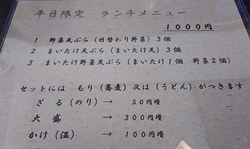 平日限定 ランチメニュー
1000円
1 野菜天ぷら(日替わり野菜)3個
2 まいたけ天ぷら(まいたけ天)3個
3 まいたけ野菜天ぷら(まいたけ1個 野菜2個)
セットには もり(蕎麦)又は(うどん)がつきます
ざる(のり)→ 50円増
大盛 → 300円増
かけ(温) → 100円増